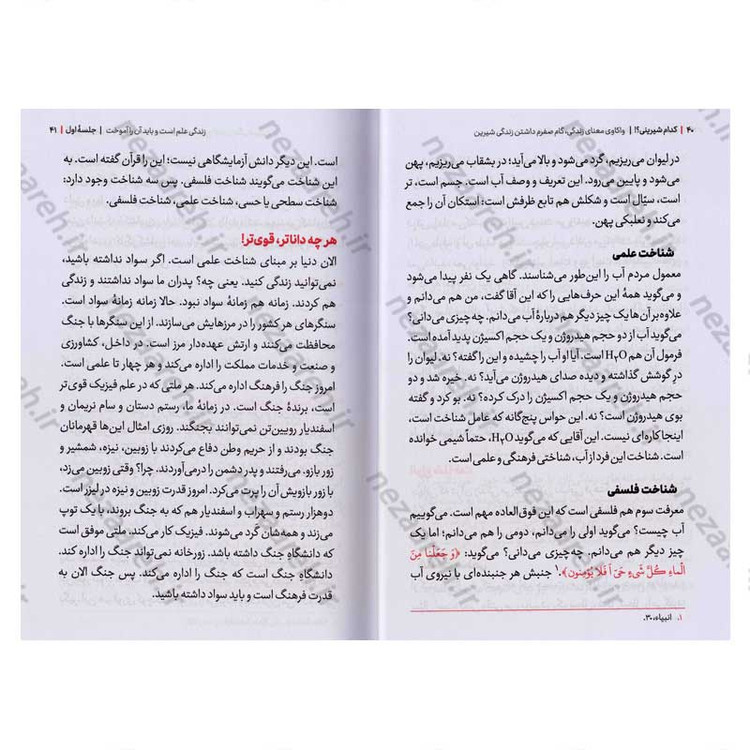 ۴۰ | کدام شیرینی؟! | واکاوی معنای زندگی، گام صفرم داشتن زندگی شیرین
در لیوان می‌ریزیم، گرد می‌شود و بالا می‌آید؛ در بشقاب می‌ریزیم، پهن
می‌شود و پایین می‌رود. این تعریف و وصف آب است. جسم است، تر
است، سیّال است و شکلش هم تابع ظرفش است؛ استکان آن را جمع
می‌کند و نعلبکی پهن.
شناخت علمی
معمول مردم آب را این‌طور می‌شناسند. گاهی یک نفر پیدا می‌شود
و می‌گوید همهٔ این حرف‌هایی را که این آقا گفت، من هم می‌دانم و
علاوه‌بر آن‌ها یک چیز دیگر هم دربارهٔ آب می‌دانم. چه‌چیزی می‌دانی؟
می‌گوید آب از دو حجم هیدروژن و یک حجم اکسیژن پدید آمده است.
فرمول آن هم H۲O است. آیا او آب را چشیده و این را گفته؟ نه. لیوان را
درِ گوشش گذاشته و دیده صدای هیدروژن می‌آید؟ نه. خیره شد و دو
حجم هیدروژن و یک حجم اکسیژن را درک کرده؟ نه. بو کرد و گفته
بوی هیدروژن است؟ نه. این حواس پنج‌گانه که عامل شناخت است،
اینجا کاره‌ای نیست. این آقایی که می‌گوید H۲O، حتماً شیمی خوانده
است. شناخت این فرد از آب، شناختی فرهنگی و علمی است.
شناخت فلسفی
معرفت سوم هم فلسفی است که این فوق‌العاده مهم است. می‌گوییم
آب چیست؟ می‌گوید اولی را می‌دانم، دومی را هم می‌دانم؛ اما یک
چیز دیگر هم می‌دانم. چه‌چیزی می‌دانی؟ می‌گوید: ﴿وَ جَعَلْنَا مِنَ
الْمَاءِ كُلَّ شَيْءٍ حَيٍّ أَ فَلَا يُؤْمِنُونَ﴾.۱ جنبش هر جنبنده‌ای با نیروی آب
۱. انبیاء، ۳۰.
زندگی علم است و باید آن را آموخت | جلسهٔ اول | ۴۱
است. این دیگر دانش آزمایشگاهی نیست؛ این را قرآن گفته است. به
این شناخت می‌گویند شناخت فلسفی. پس سه شناخت وجود دارد:
شناخت سطحی یا حسی، شناخت علمی، شناخت فلسفی.
هر چه داناتر، قوی‌تر!
الان دنیا بر مبنای شناخت علمی است. اگر سواد نداشته باشید،
نمی‌توانید زندگی کنید. یعنی چه؟ پدران ما سواد نداشتند و زندگی
هم کردند. زمانه هم زمانهٔ سواد نبود. حالا زمانه زمانهٔ سواد است.
سنگرهای هر کشور را در مرزهایش می‌سازند. از این سنگرها با جنگ
محافظت می‌کنند و ارتش عهده‌دار مرز است. در داخل، کشاورزی
و صنعت و خدمات مملکت را اداره می‌کند و هر چهار تا علمی است.
امروز جنگ را فرهنگ اداره می‌کند. هر ملتی که در علم فیزیک قوی‌تر
است، برندهٔ جنگ است. در زمانهٔ ما، رستم دستان و سام نریمان و
اسفندیار رویین‌تن نمی‌توانند بجنگند. روزی امثال این‌ها قهرمانان
جنگ بودند و از حریم وطن دفاع می‌کردند با زوبین، نیزه، شمشیر و
زور بازو. می‌رفتند و پدر دشمن را درمی‌آوردند. چرا؟ وقتی زوبین می‌زد،
با زور بازویش آن را پرت می‌کرد. امروز قدرت زوبین و نیزه در لیزر است.
دوهزار رستم و سهراب و اسفندیار هم که به جنگ بروند، با یک توپ
می‌زند و همه‌شان گَرد می‌شوند. فیزیک کار می‌کند. ملتی موفق است
که دانشگاهِ جنگ داشته باشد. زورخانه نمی‌تواند جنگ را اداره کند.
دانشگاهِ جنگ است که جنگ را اداره می‌کند. پس جنگ الان به
قدرت فرهنگ است و باید سواد داشته باشید.
nezaareh.ir